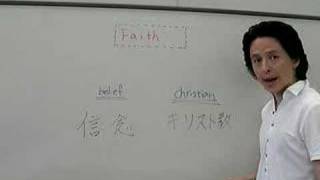 Faith
belief christian
信念 キリスト教